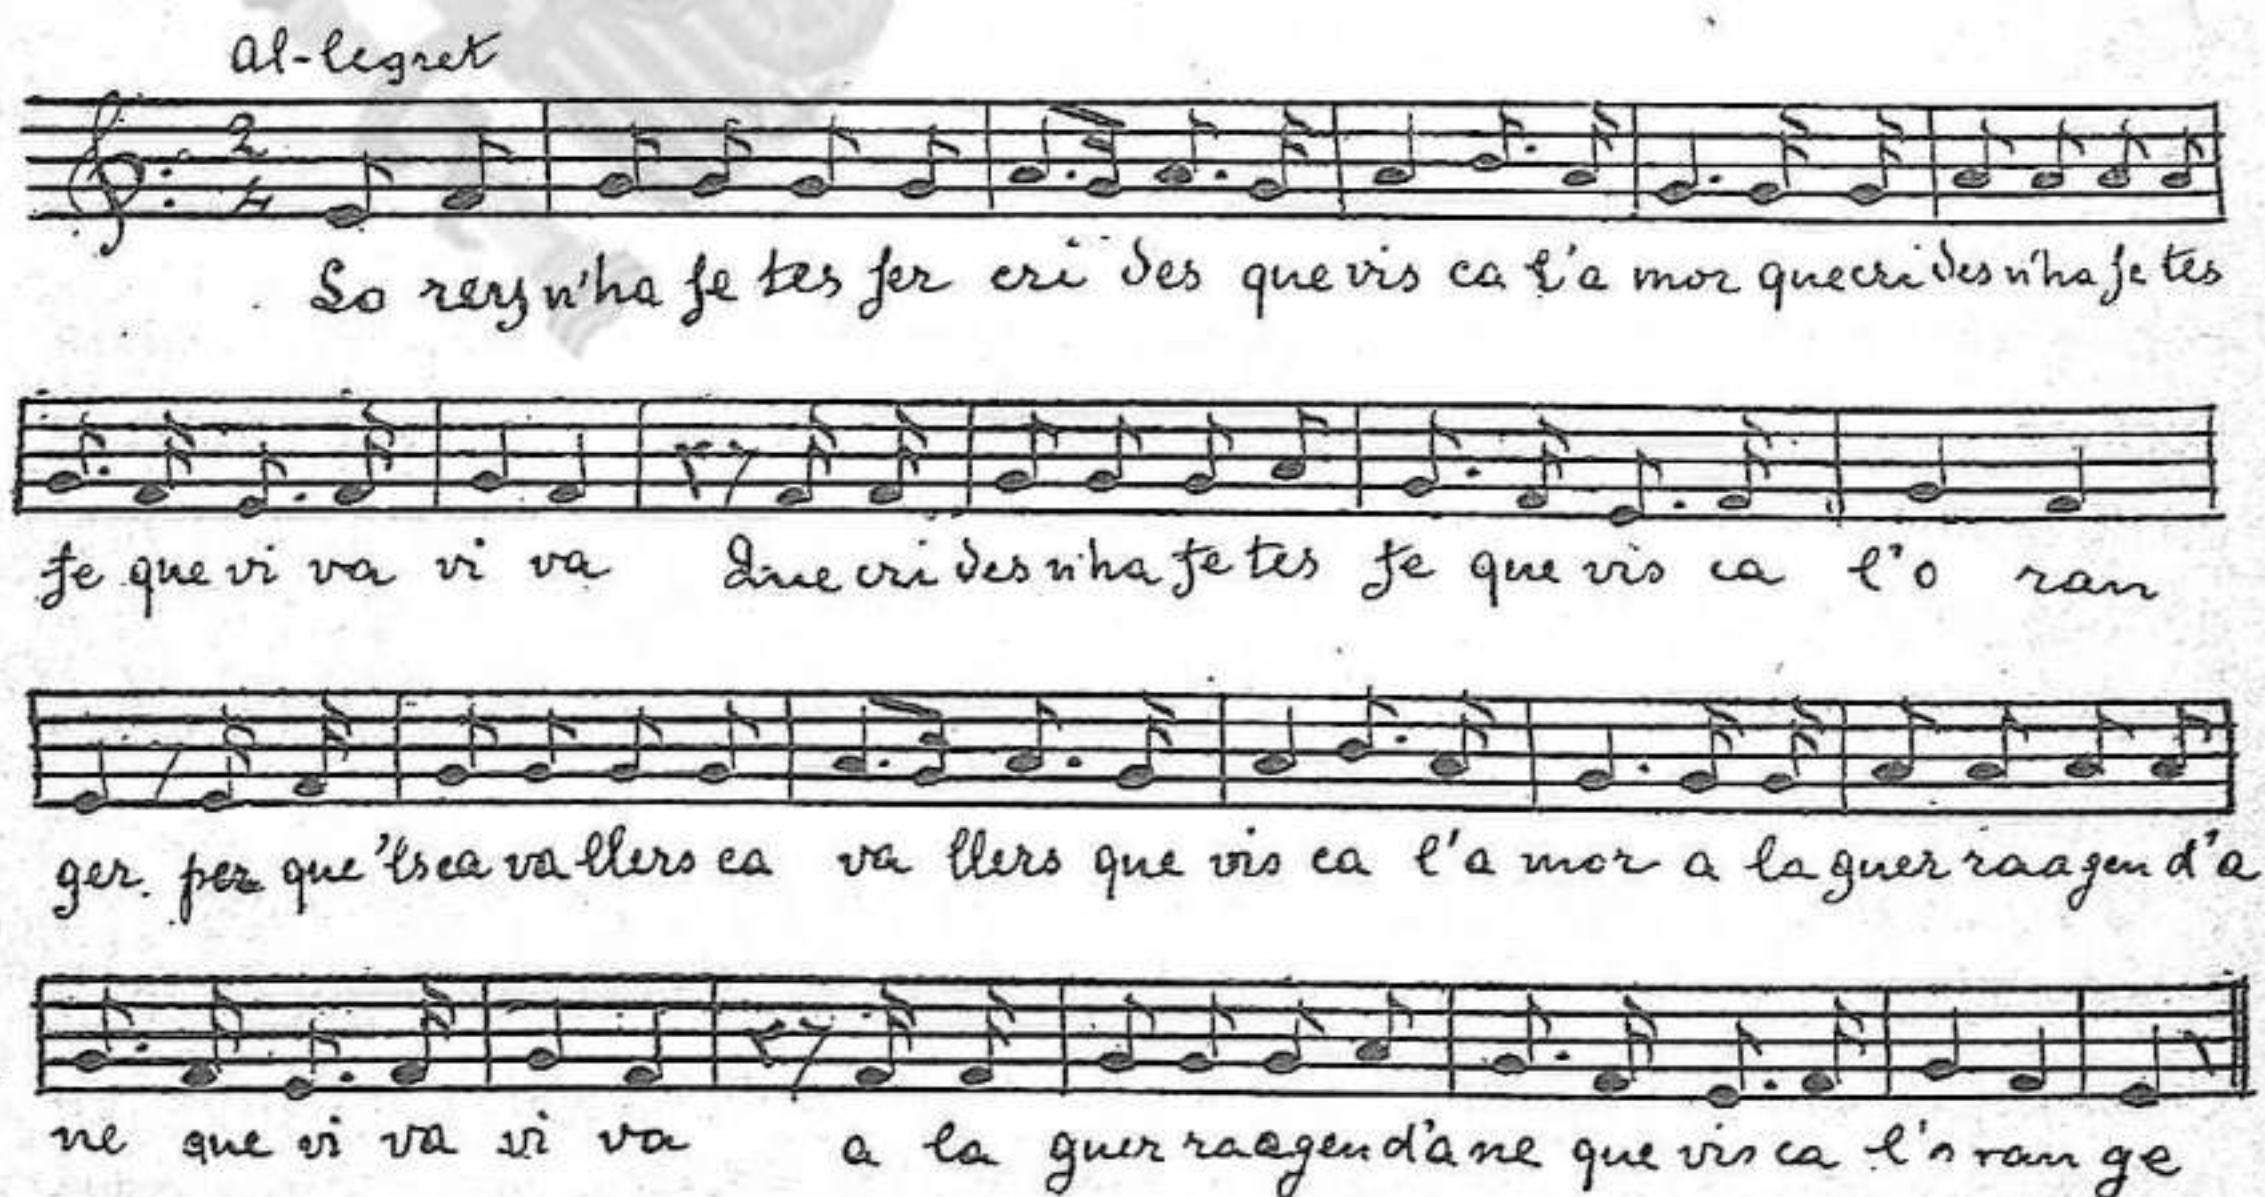 Al-legret
2
4
Lo rey n'ha fe tes fer cri des que vis ca l'a mor que cri des n'ha fe tes
fe que vi va vi va Que cri des n'ha fe tes fe que vis ca l'o ran
ger. per que 'ls ca va llers ca va llers que vis ca l'a mor a la guer ra a gen d'a
ne que vi va vi va a la guer ra a gen d'a ne que vis ca l'o ran ge